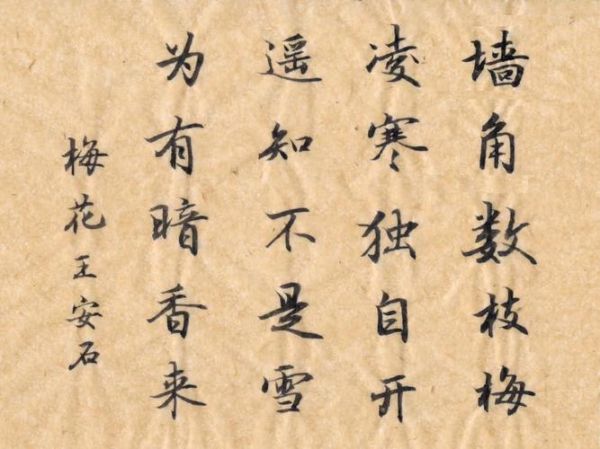 墙角数枝梅
凌寒独自开
遥知不是雪
为有暗香来
梅花王安石